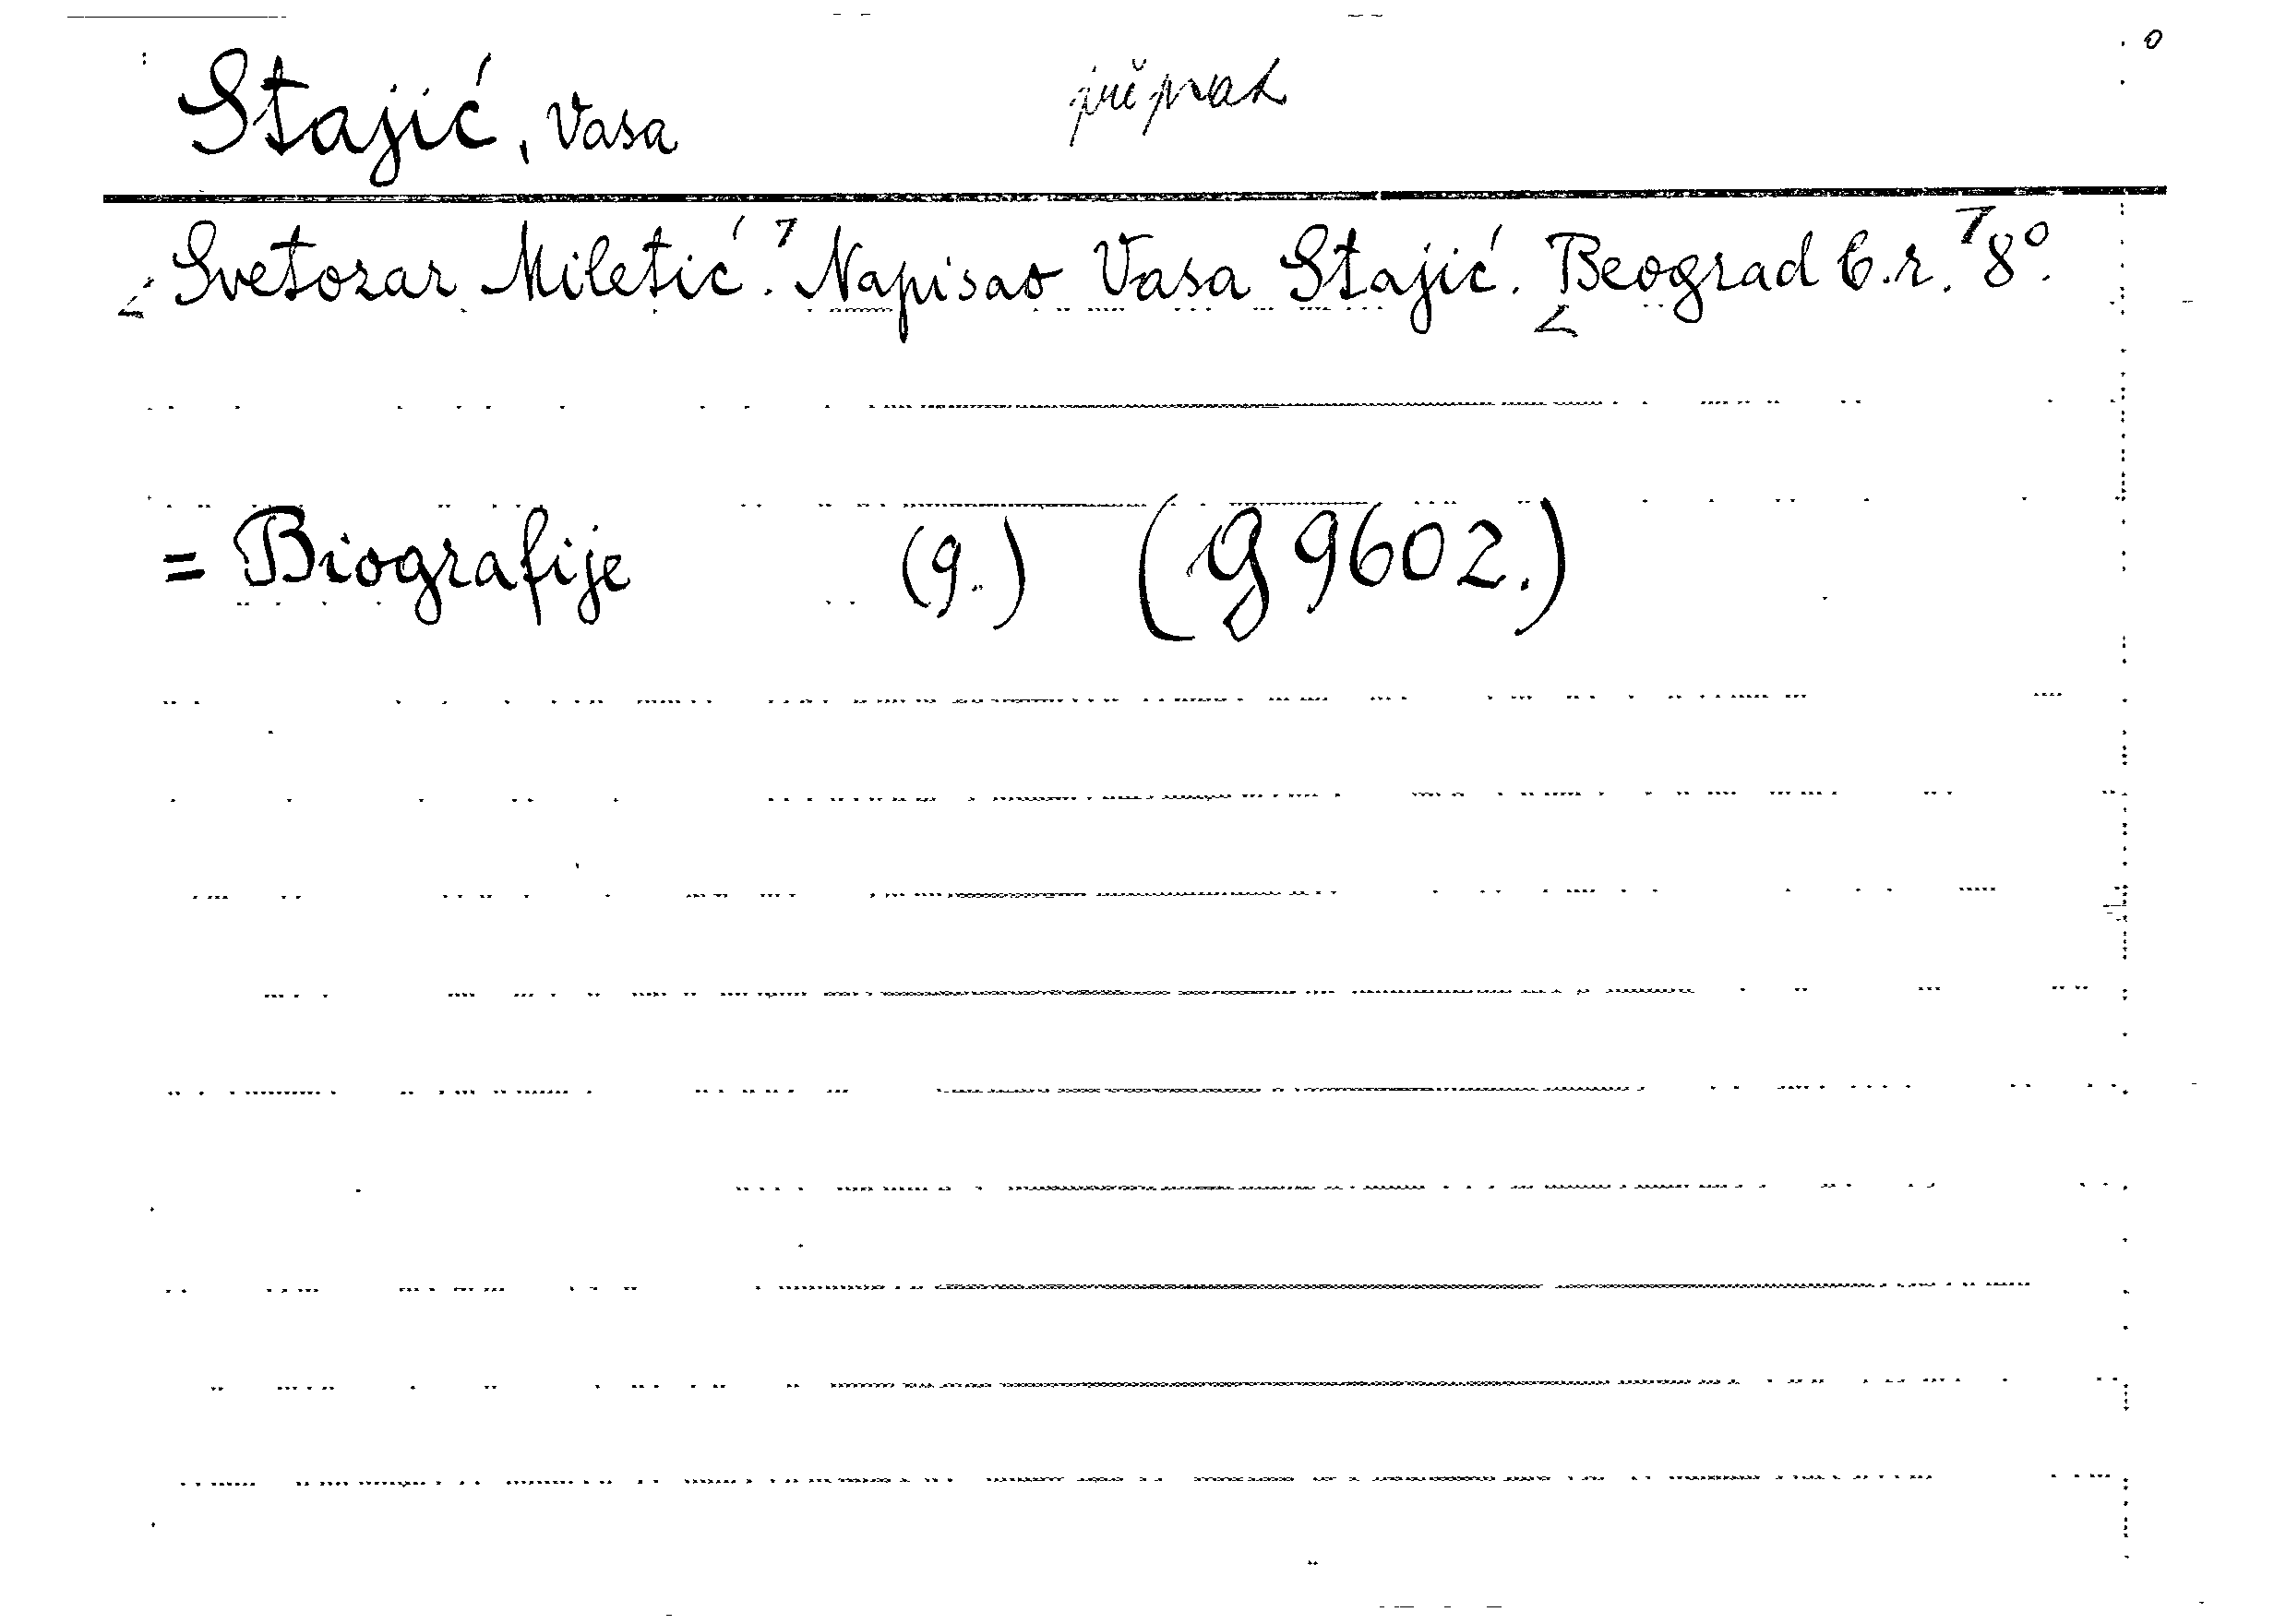 Stajić, Vasa
Svetozar Miletić. Napisao Vasa Stajić. Beograd b. r. 8°.
= Biografije (9.) (G 9602.)